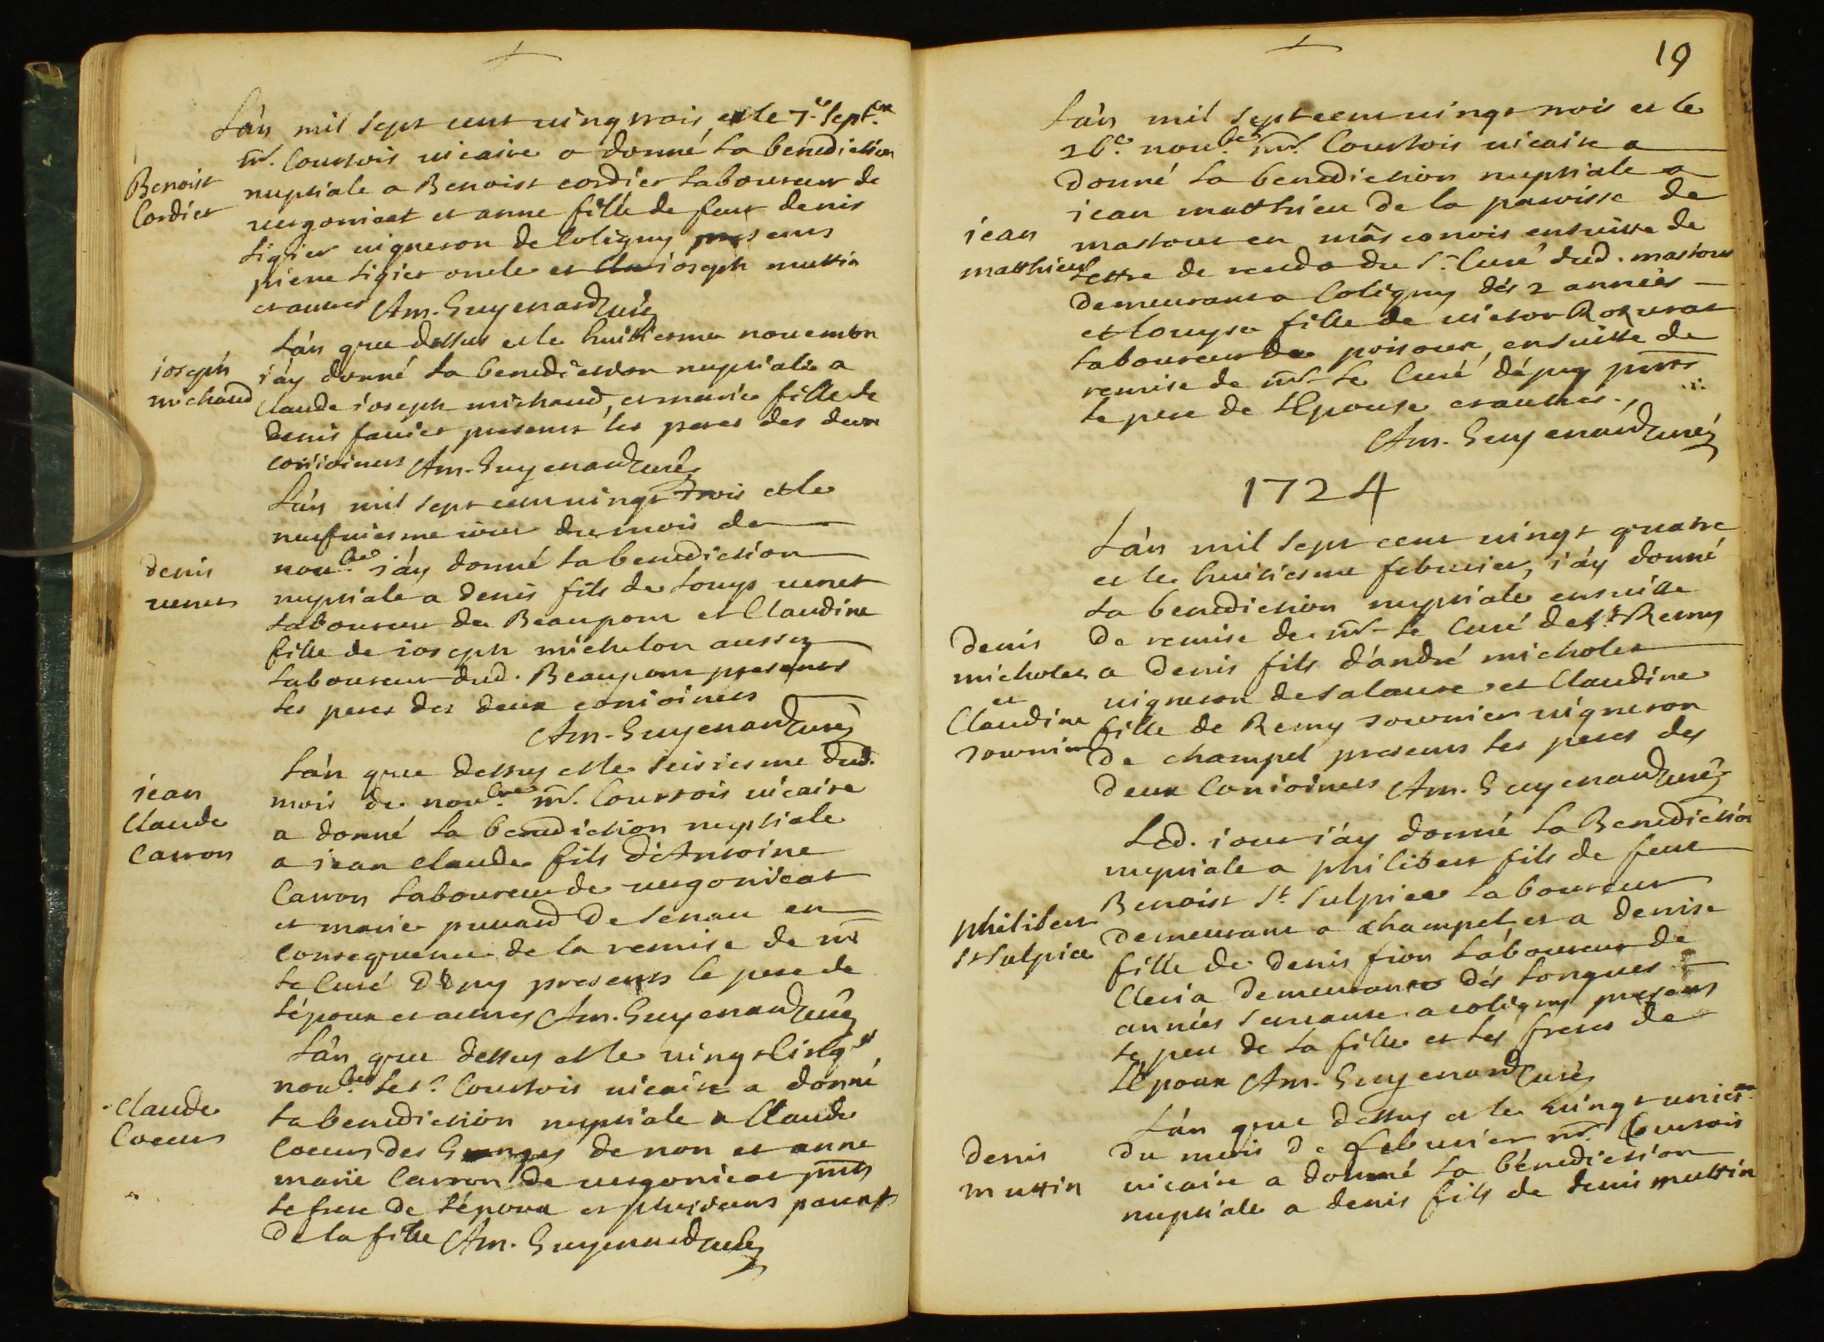 L'an mil sept cent ving trois, et le 7.e Sept.bre
mr. Courtois vicaire a donné la benediction
Benoist
Cordier
nuptiale a Benoist cordier laboureur de
vergonicat et anne fille de feut denis
ligier vigneron de Coligny presens
pierre ligier oncle et joseph muttin
et autres Am. Guyenard curé
L'an que dessus et le huitiesme novembre
ioseph
michaud
j'ay donné la benediction nuptiale a
Claude ioseph michaud, et marie fille de
denis favier presens les peres des deux
conioincts Am. Guyenard curé
L'an mil sept cent vingt trois et le
neufviesme iour du mois de
denis
venet
nov.bre j'ay donné la benediction
nuptiale a denis fils de louys venet
laboureur de Beaupont et Claudine
fille de ioseph michelon aussy
laboureur dud. Beaupont presents
les peres des deux conioincts
Am. Guyenard curé
L'an que dessus et le seisiesme dud.
iean
Claude
Carron
mois de nov.bre mr. Courtois vicaire
a donné la benediction nuptiale
a iean claude fils d'Antoine
Carron laboureur de vergonicat
et marie puvard de senau en
consequence de la remise de mr
le Curé d'épy presents le pere de
l'époux et autres Am. Guyenard curé
L'an que dessus et le vingt cinq.e
Claude
Coeur
nov.bre le sr. Courtois vicaire a donné
la benediction nuptiale a Claude
Coeur des Granges de non et anne
marie Carron de vergonicat pnts
le frere de l'époux et plusieurs parents
de la fille Am. Guyenard curé
19
L'an mil sept cent vingt trois et le
26.e nov.bre mr. Courtois vicaire a
donné la benediction nuptiale a
iean
matthieu
iean matthieu de la paroisse de
mastour en mâsconois ensuitte de
lettre de recedo du Sr. Curé dud. mastour
demeurant a Coligny dés 2 années
et louyse fille de victor
laboureur de poisoux, ensuitte de
remise de mr. le Curé d'épy pnts
le pere de l'Epouse et autres.
Am. Guyenard curé
1724
L'an mil sept cent vingt quatre
et le huitiesme febvrier, j'ay donné
la benediction nuptiale ensuitte
de remise de mr. le Curé de St Remy
denis
micholet
et
Claudine
sournier
a denis fils d'andré micholet
vigneron de salavre et Claudine
fille de Remy sournier vigneron
de champel presens les peres des
deux Conioincts Am. Guyenard curé
Led. iour j'ay donné la Benediction
nuptiale a philibert fils de feut
philibert
St Sulpice
Benoist St. Sulpice laboureur
demeurant a champel, et a denise
fille de denis fion laboureur de
Cleria demeurante dés longues
années servante a coligny presens
le pere de la fille et les freres de
l'époux Am. Guyenard Curé
L'an que dessus et le vingt unies.me
denis
muttin
du mois de febvrier mr. Courtois
vicaire a donné la bénediction
nuptiale a denis fils de denis muttin